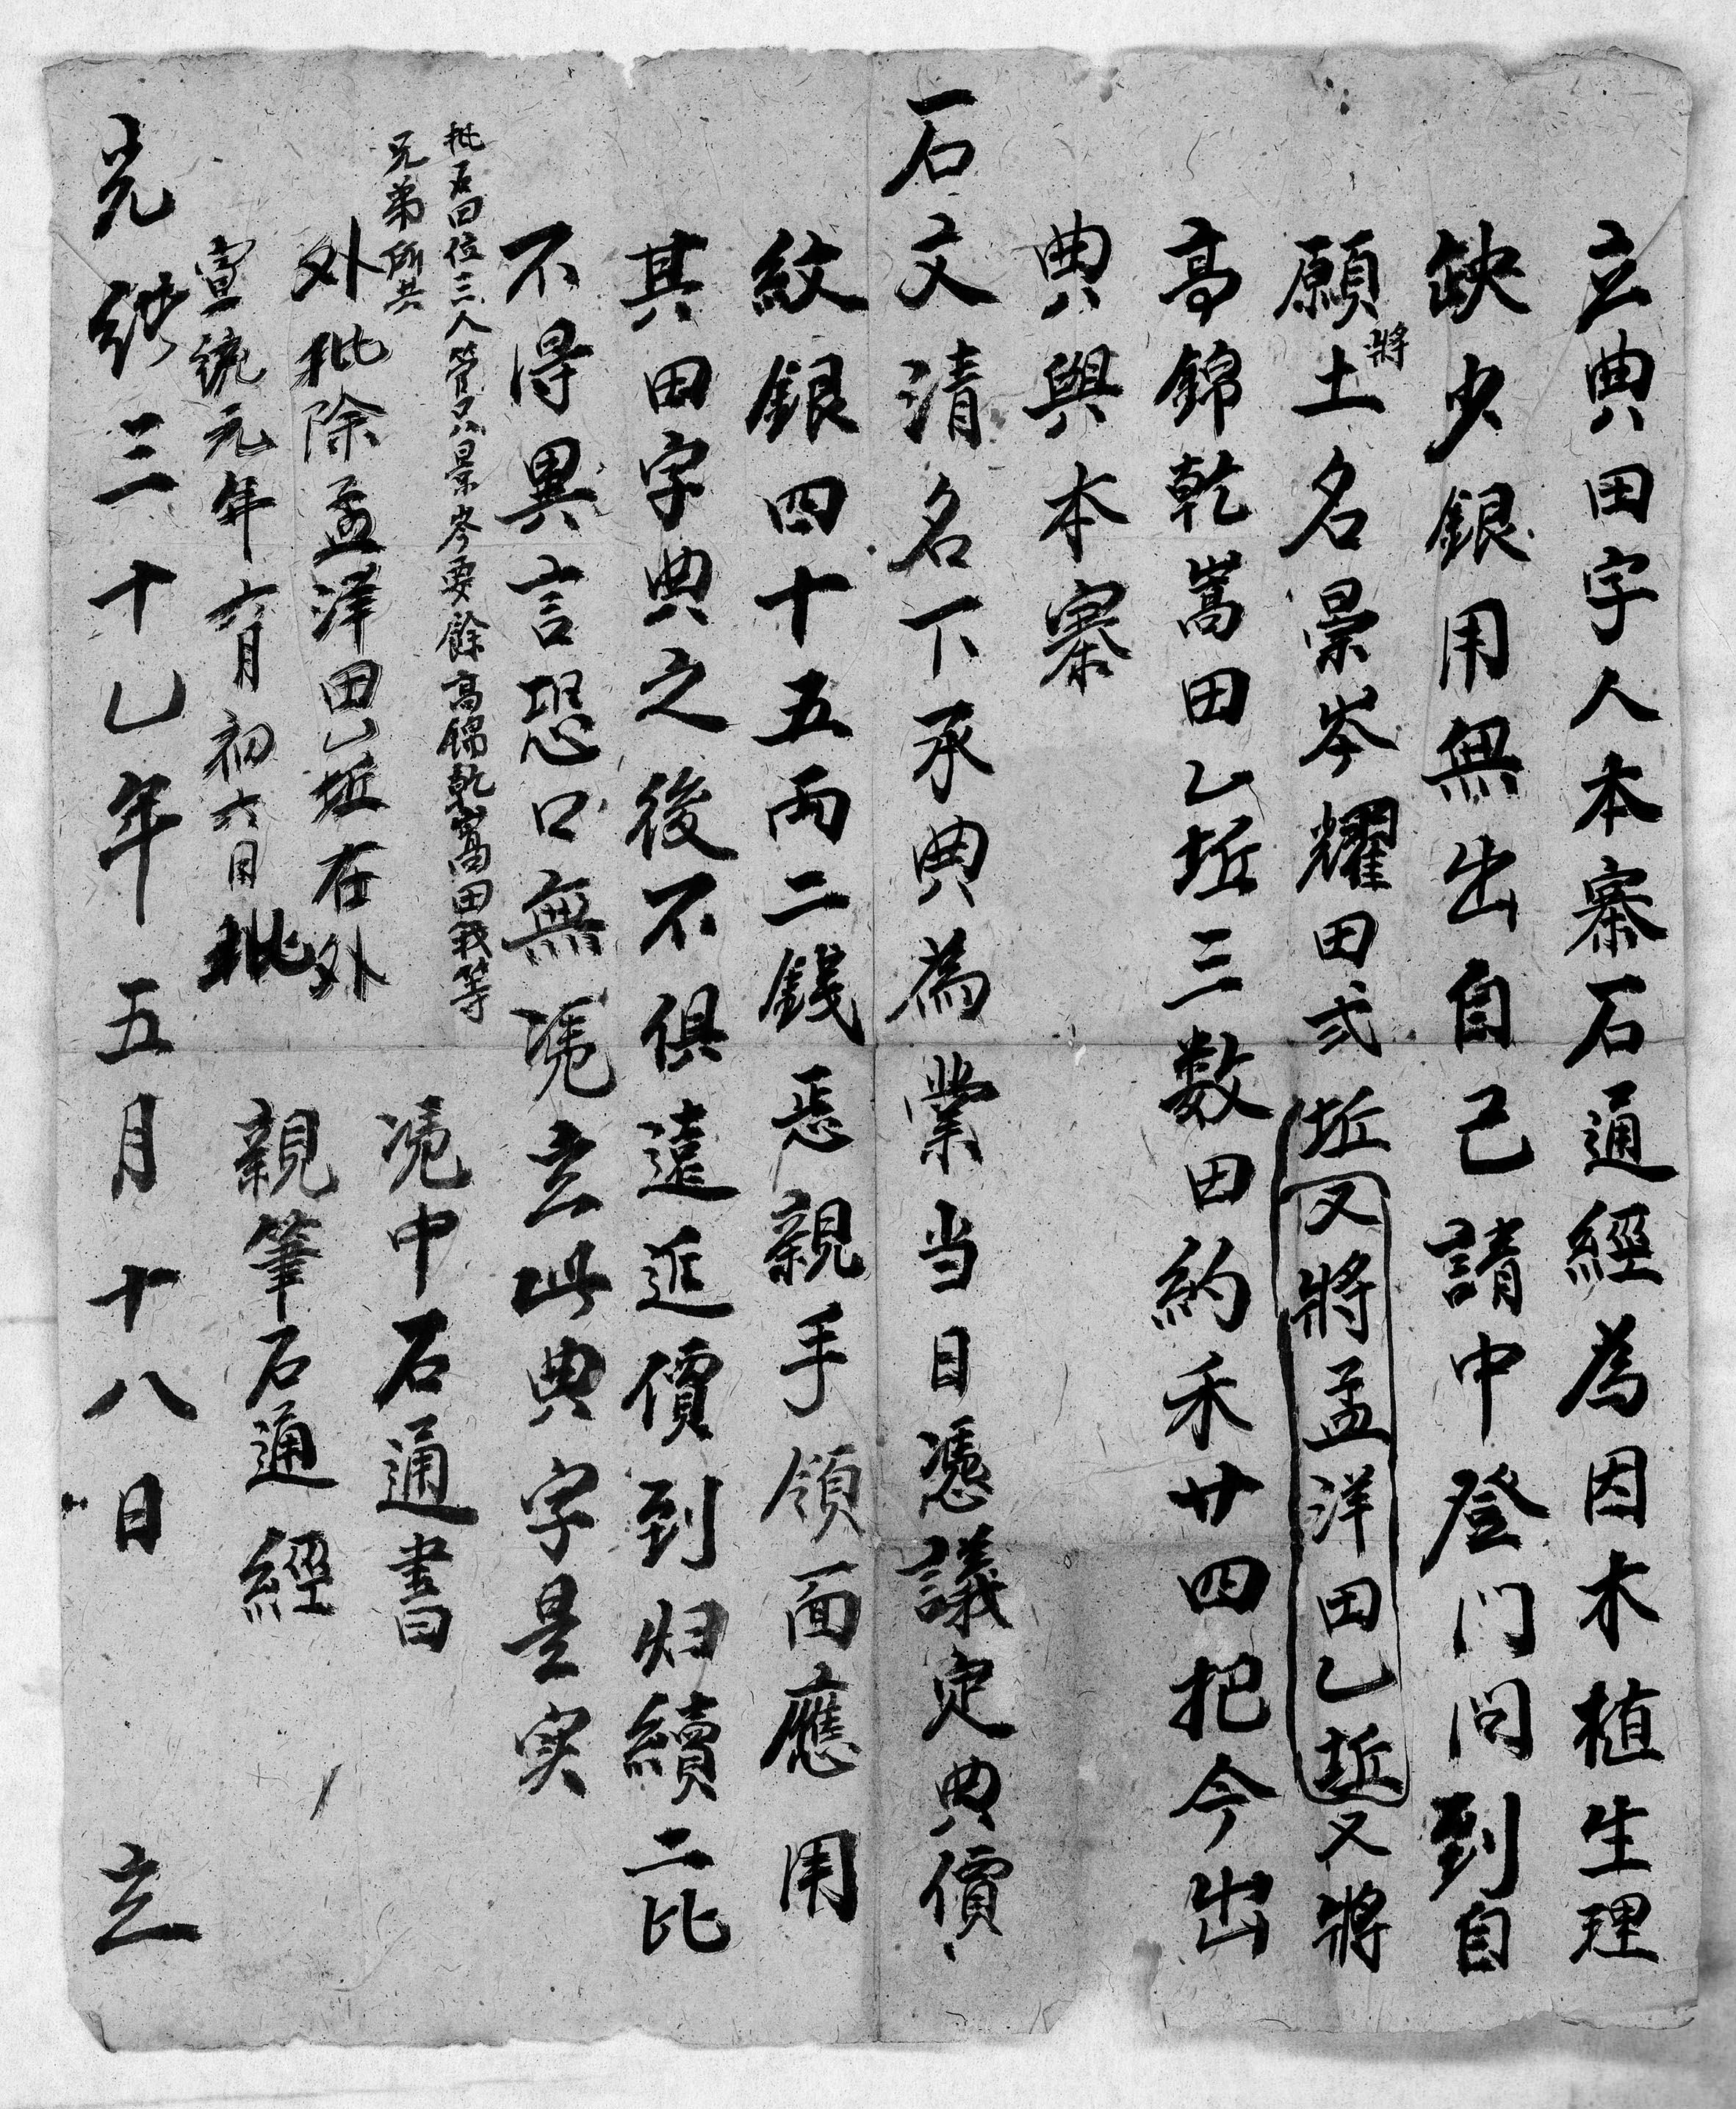 立典田字人本寨石通經為因木植生理
缺少銀用無出自己請中登门问到自
願將土名景岑耀田弍坵又將孟洋田乙坵又將
高錦乾嵩田乙坵三数田約禾廿四把今出
典與本寨
石文清名下承典為業当日憑議定典價
紋銀四十五両二錢悉親手領面應用
其田字典之後不俱遠近價到归續二比
不得異言恐口無凴立此典字是实
批石田位三人管只景岑要餘高錦乾嵩田我等
兄弟所共
凴中石通書
外批除孟洋田乙坵在外
親筆石通經
宣統元年六月初六日批
光緒三十乙年五月十八日立